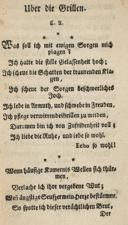 Über die Grillen.
C. A.
Was soll ich mit ewigen Sorgen mich
plagen?
Ich halte die stille Gelassenheit hoch;
Ich scheue die Schatten der traurenden Kla-
gen,
Ich scheue der Sorgen beschwerliches
Joch.
Ich lebe in Anmuth, und schwebe in Freuden,
Ich pflege verwirrende Grillen zu meiden,
Darum bin ich von Zufriedenheit voll;
Ich liebe die Ruhe, und lebe so wohl.
Lebe so wohl!
Wenn häufige Kummerniß Wellen sich thür-
men,
Verlache ich ihre vergebene Wut;
Weil ängstige Seufzer mein Herze bestürmen,
So spotte ich dieser verächtlichen Brut,
Der